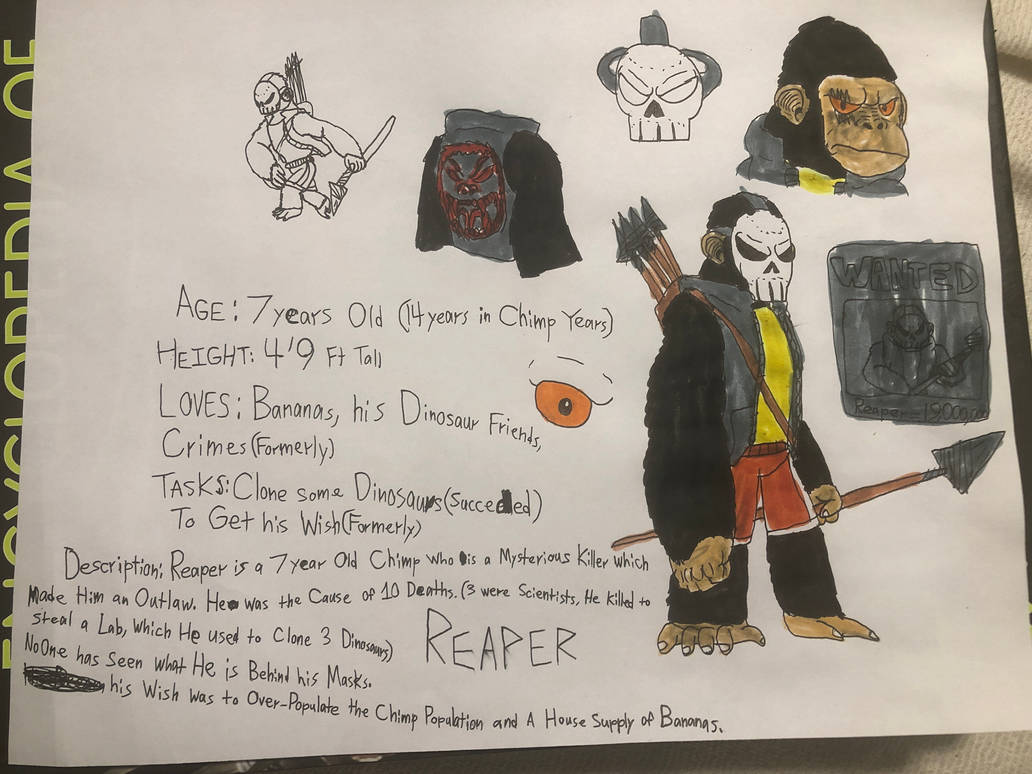 ENCYCLOPEDIA OF
WANTED
AGE: 7 years Old (14 years in Chimp Years)
HEIGHT: 4'9 Ft Tall
LOVES: Bananas, his Dinosaur Friends,
Crimes (Formerly)
TASKS: Clone some Dinosaurs (Succeeded)
To Get his Wish (Formerly)
Description: Reaper is a 7 year Old Chimp who is a Mysterious Killer which
Made Him an Outlaw. He was the Cause of 10 Deaths. (3 were Scientists, He killed to
Steal a Lab, which He used to Clone 3 Dinosaurs)
No One has Seen what He is Behind his Masks.
his Wish was to Over-Populate the Chimp Population and A House Supply of Bananas.
REAPER
Reaper